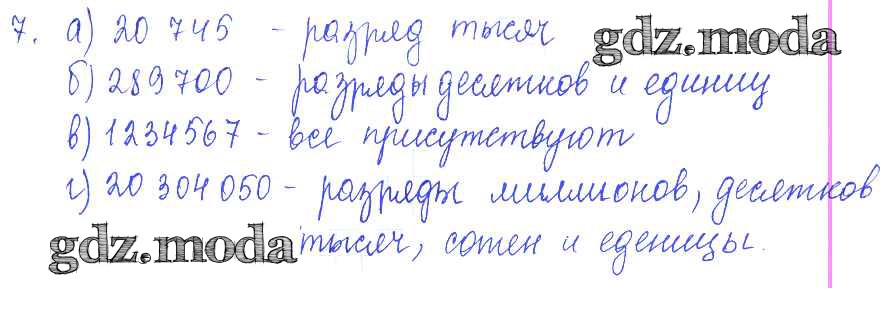 7. а) 20 745 - разряд тысяч
gdz.moda
б) 289700 - разряды десятков и единиц
в) 1234567 - все присутствуют
г) 20 304 050 - разряды миллионов, десятков
gdz.moda тысяч, сотен и еденицы.